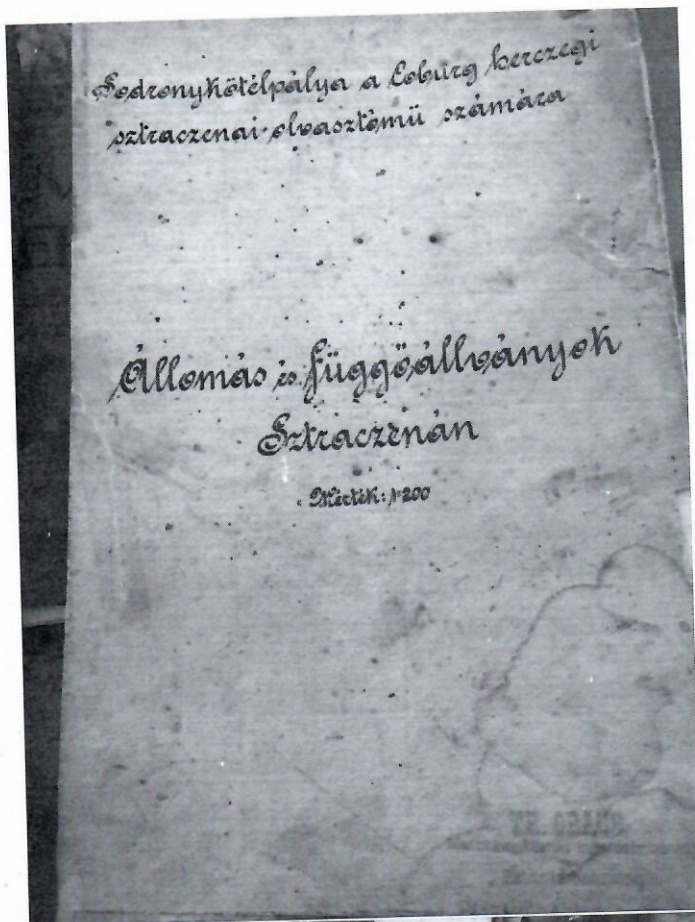 Sodronykötélpálya a Coburg herczegi
sztraczenai-olvasztómű számára
Állomás és függőállványok
Sztraczenán
Mérték: 1:200